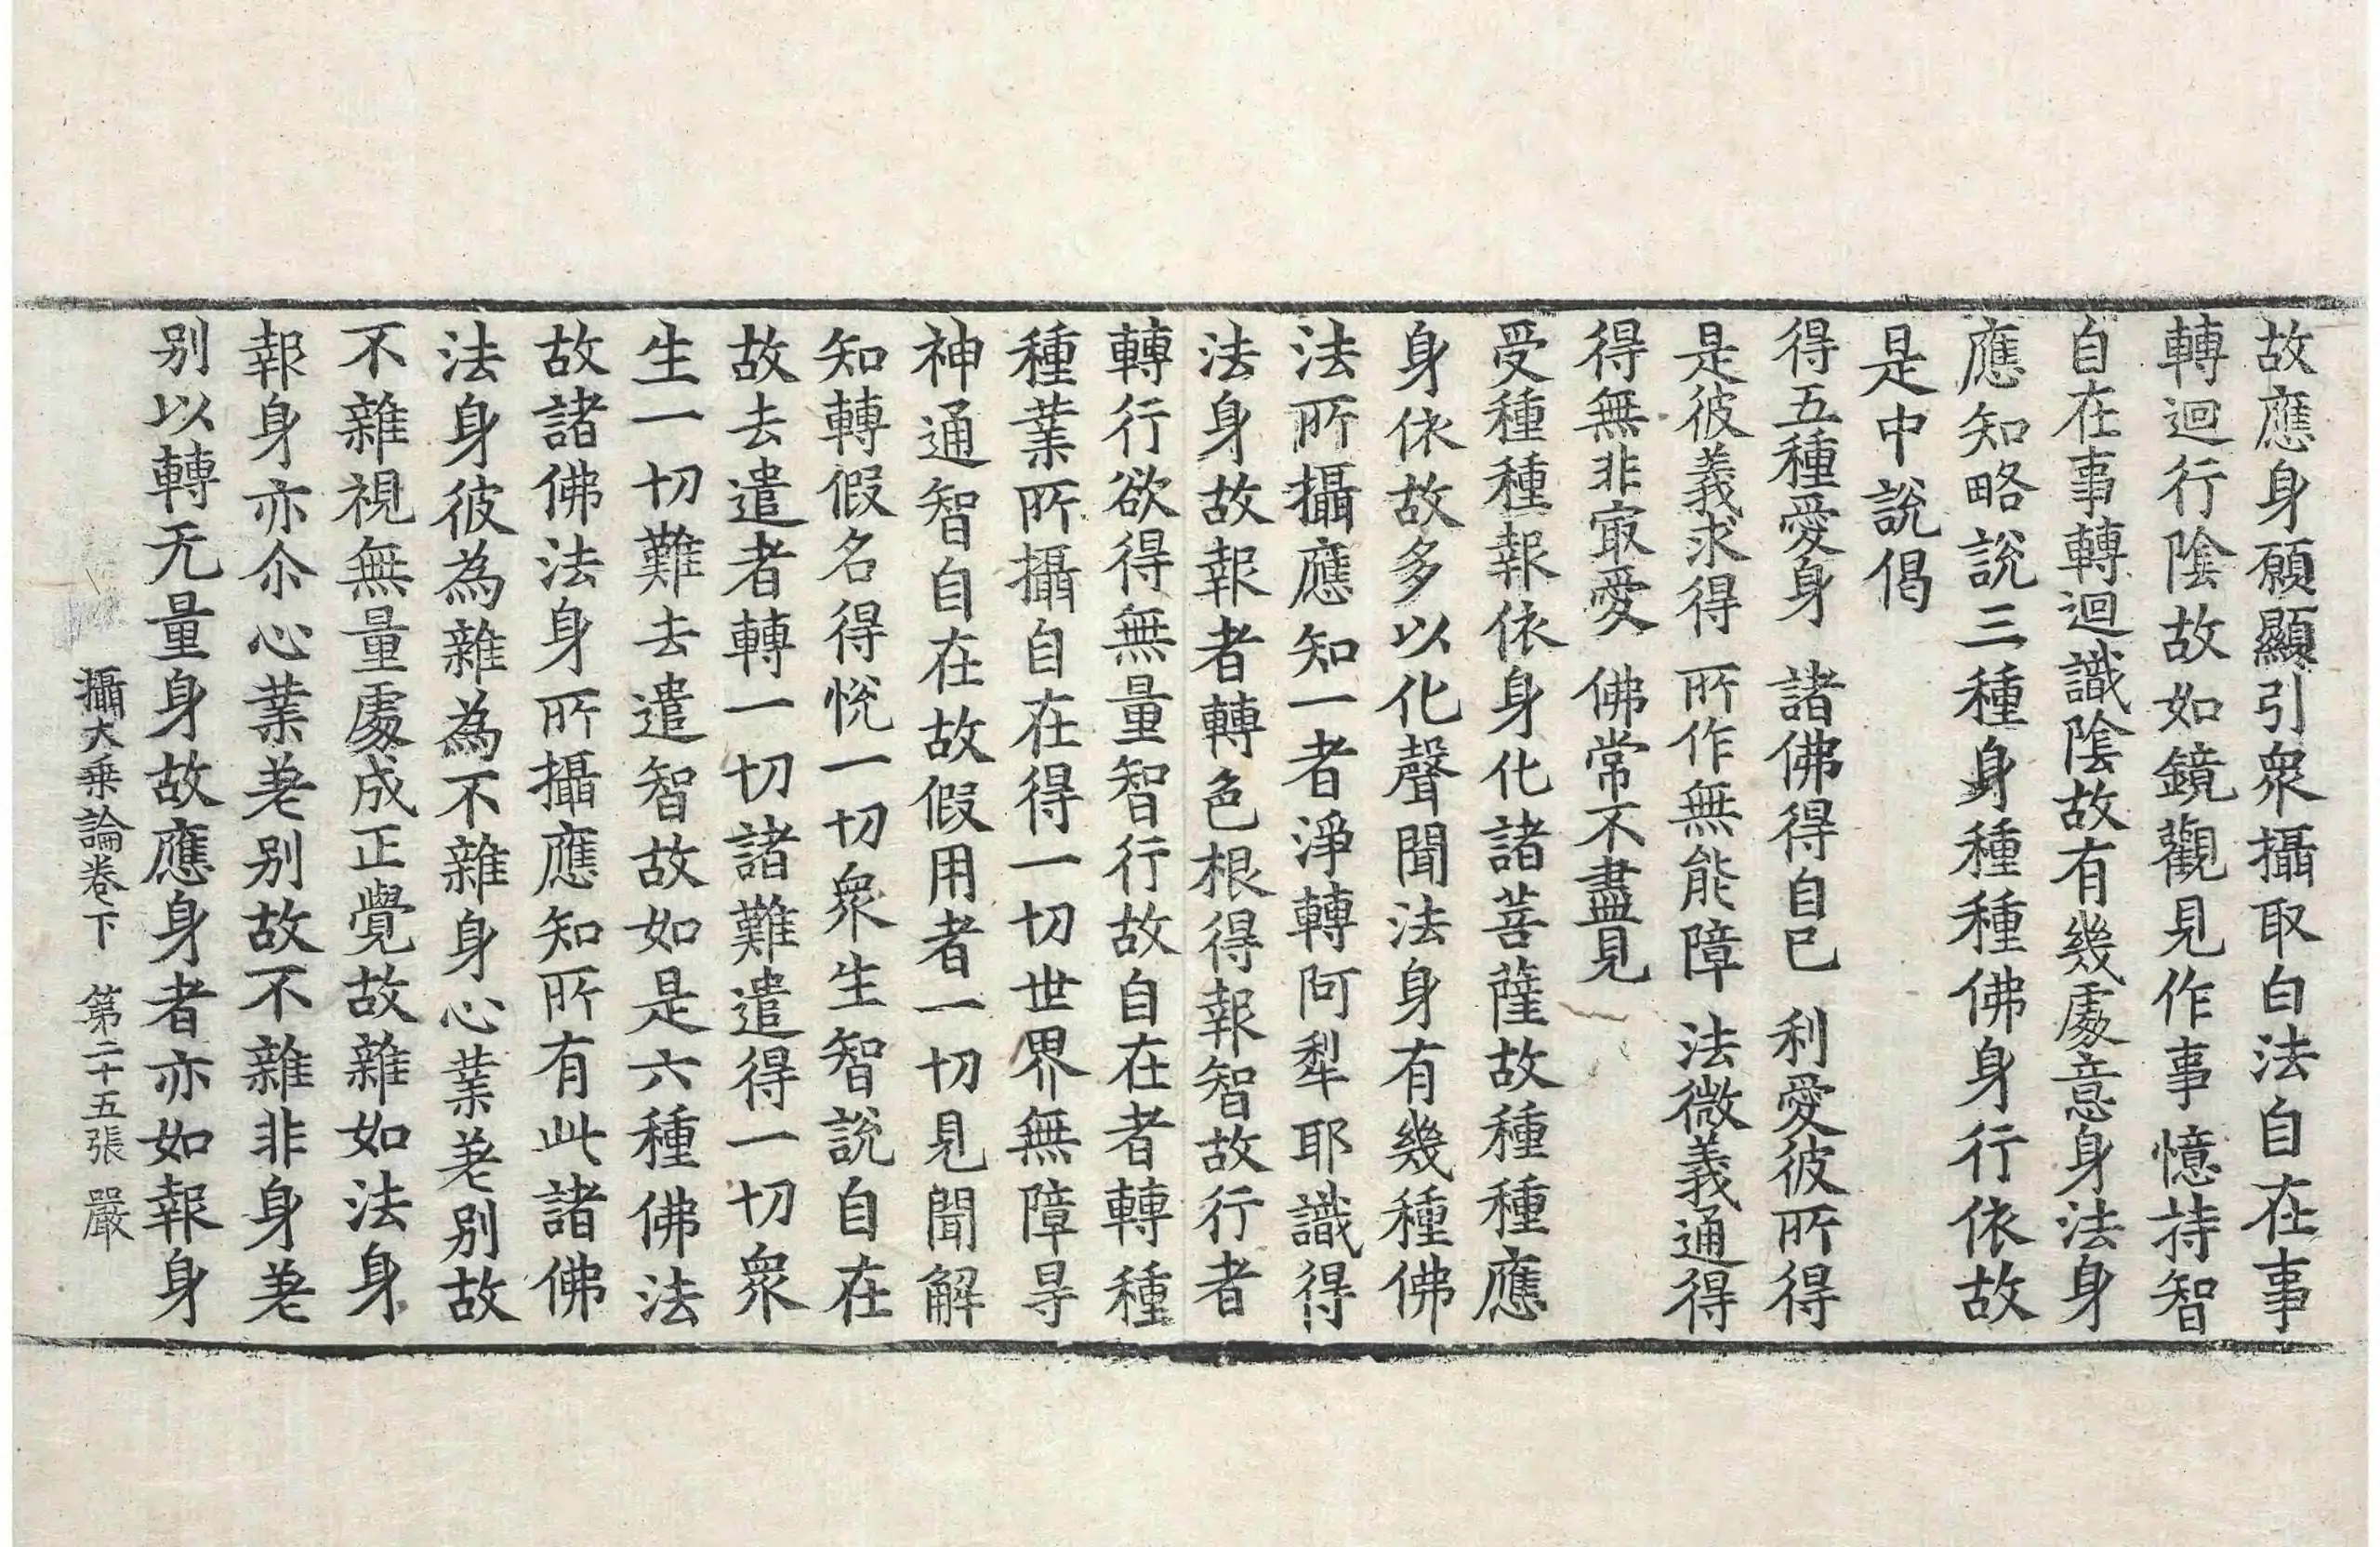 故應身願顯引衆攝取白法自在事
轉迴行陰故如鏡觀見作事憶持智
自在事轉迴識陰故有幾處意身法身
應知略說三種身種種佛身行依故
是中說偈
得五種愛身　諸佛得自已　利愛彼所得
是彼義求得　所作無能障　法微義通得
得無非㝡愛　佛常不盡見
受種種報依身化諸菩薩故種種應
身依故多以化聲聞法身有幾種佛
法所攝應知一者淨轉阿犁耶識得
法身故報者轉色根得報智故行者
轉行欲得無量智行故自在者轉種
種業所攝自在得一切世界無障㝵
神通智自在故假用者一切見聞解
知轉假名得悅一切衆生智說自在
故去遣者轉一切諸難遣得一切衆
生一切難去遣智故如是六種佛法
故諸佛法身所攝應知所有此諸佛
法身彼為雜為不雜身心業差別故
不雜視無量處成正覺故雜如法身
報身亦尒心業差別故不雜非身差
別以轉无量身故應身者亦如報身
攝大乘論卷下　第二十五張　嚴